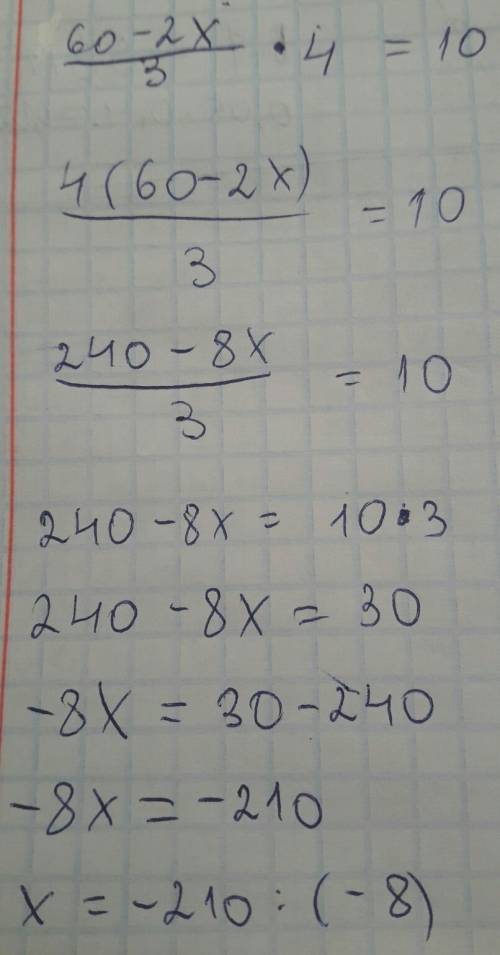 60-2x/3 · 4 = 10
4(60-2x)/3 = 10
240-8x/3 = 10
240-8x = 10·3
240-8x = 30
-8x = 30-240
-8x = -210
x = -210 : (-8)